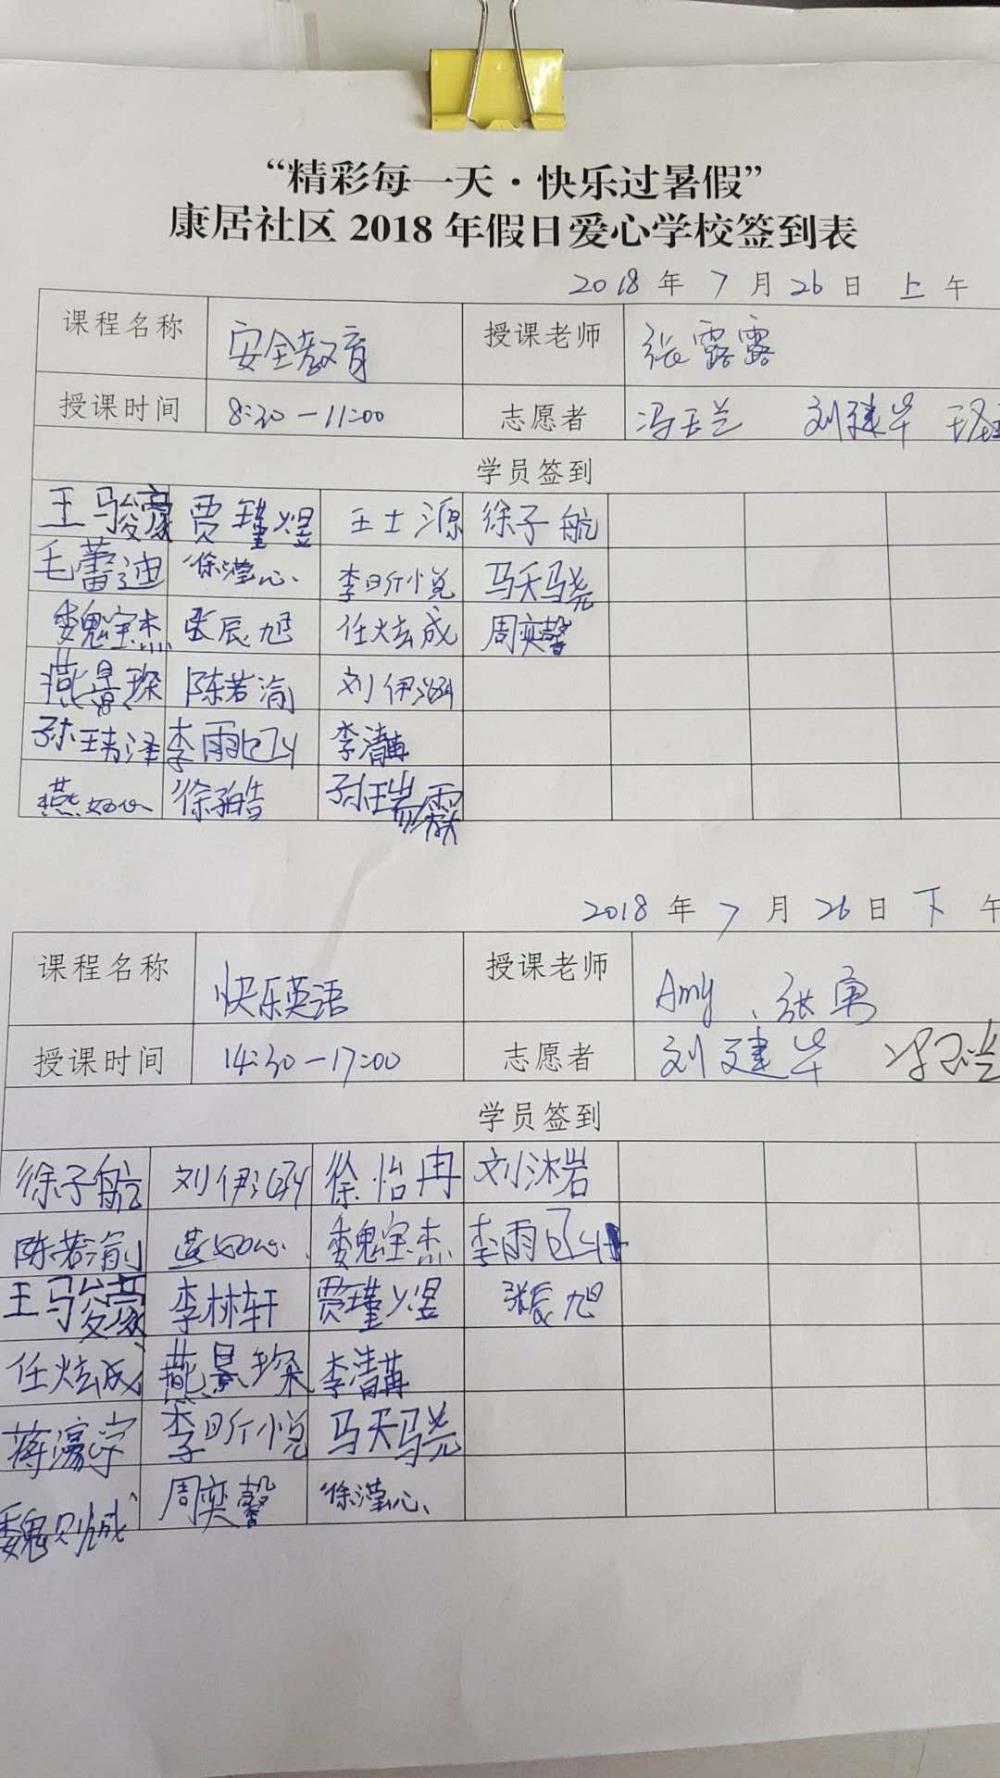 “精彩每一天·快乐过暑假”
康居社区 2018 年假日爱心学校签到表
2018 年 7 月 26 日 上 午
课程名称 安全教育 授课老师 张露露
授课时间 8:30—11:00 志愿者 冯玉兰 刘建华
学员签到
王马骏豪 贾瑾煜 王士源 徐子航
毛蕾迪 徐滢心 李昕悦 马天骁
魏宝杰 张辰旭 任炫成 周奕馨
燕景琛 陈若渝 刘伊涵
孙靖泽 李雨 李清
燕如心 徐
2018 年 7 月 26 日 下 午
课程名称 快乐英语 授课老师 Amy、张勇
授课时间 14:30—17:00 志愿者 刘建华 冯玉兰
学员签到
徐子航 刘伊涵 徐怡冉 刘沐岩
陈若渝 燕如心 魏宝杰 李雨
王马骏豪 李林轩 贾瑾煜 张辰旭
任炫成 燕景琛 李清
蒋濠宇 李昕悦 马天骁
魏则成 周奕馨 徐滢心